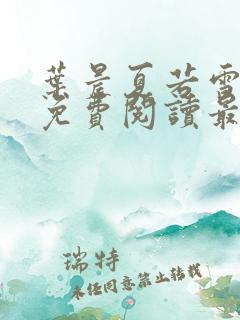 葉晨夏若雪
免費閱讀最
瑞特
未经同意禁止转载